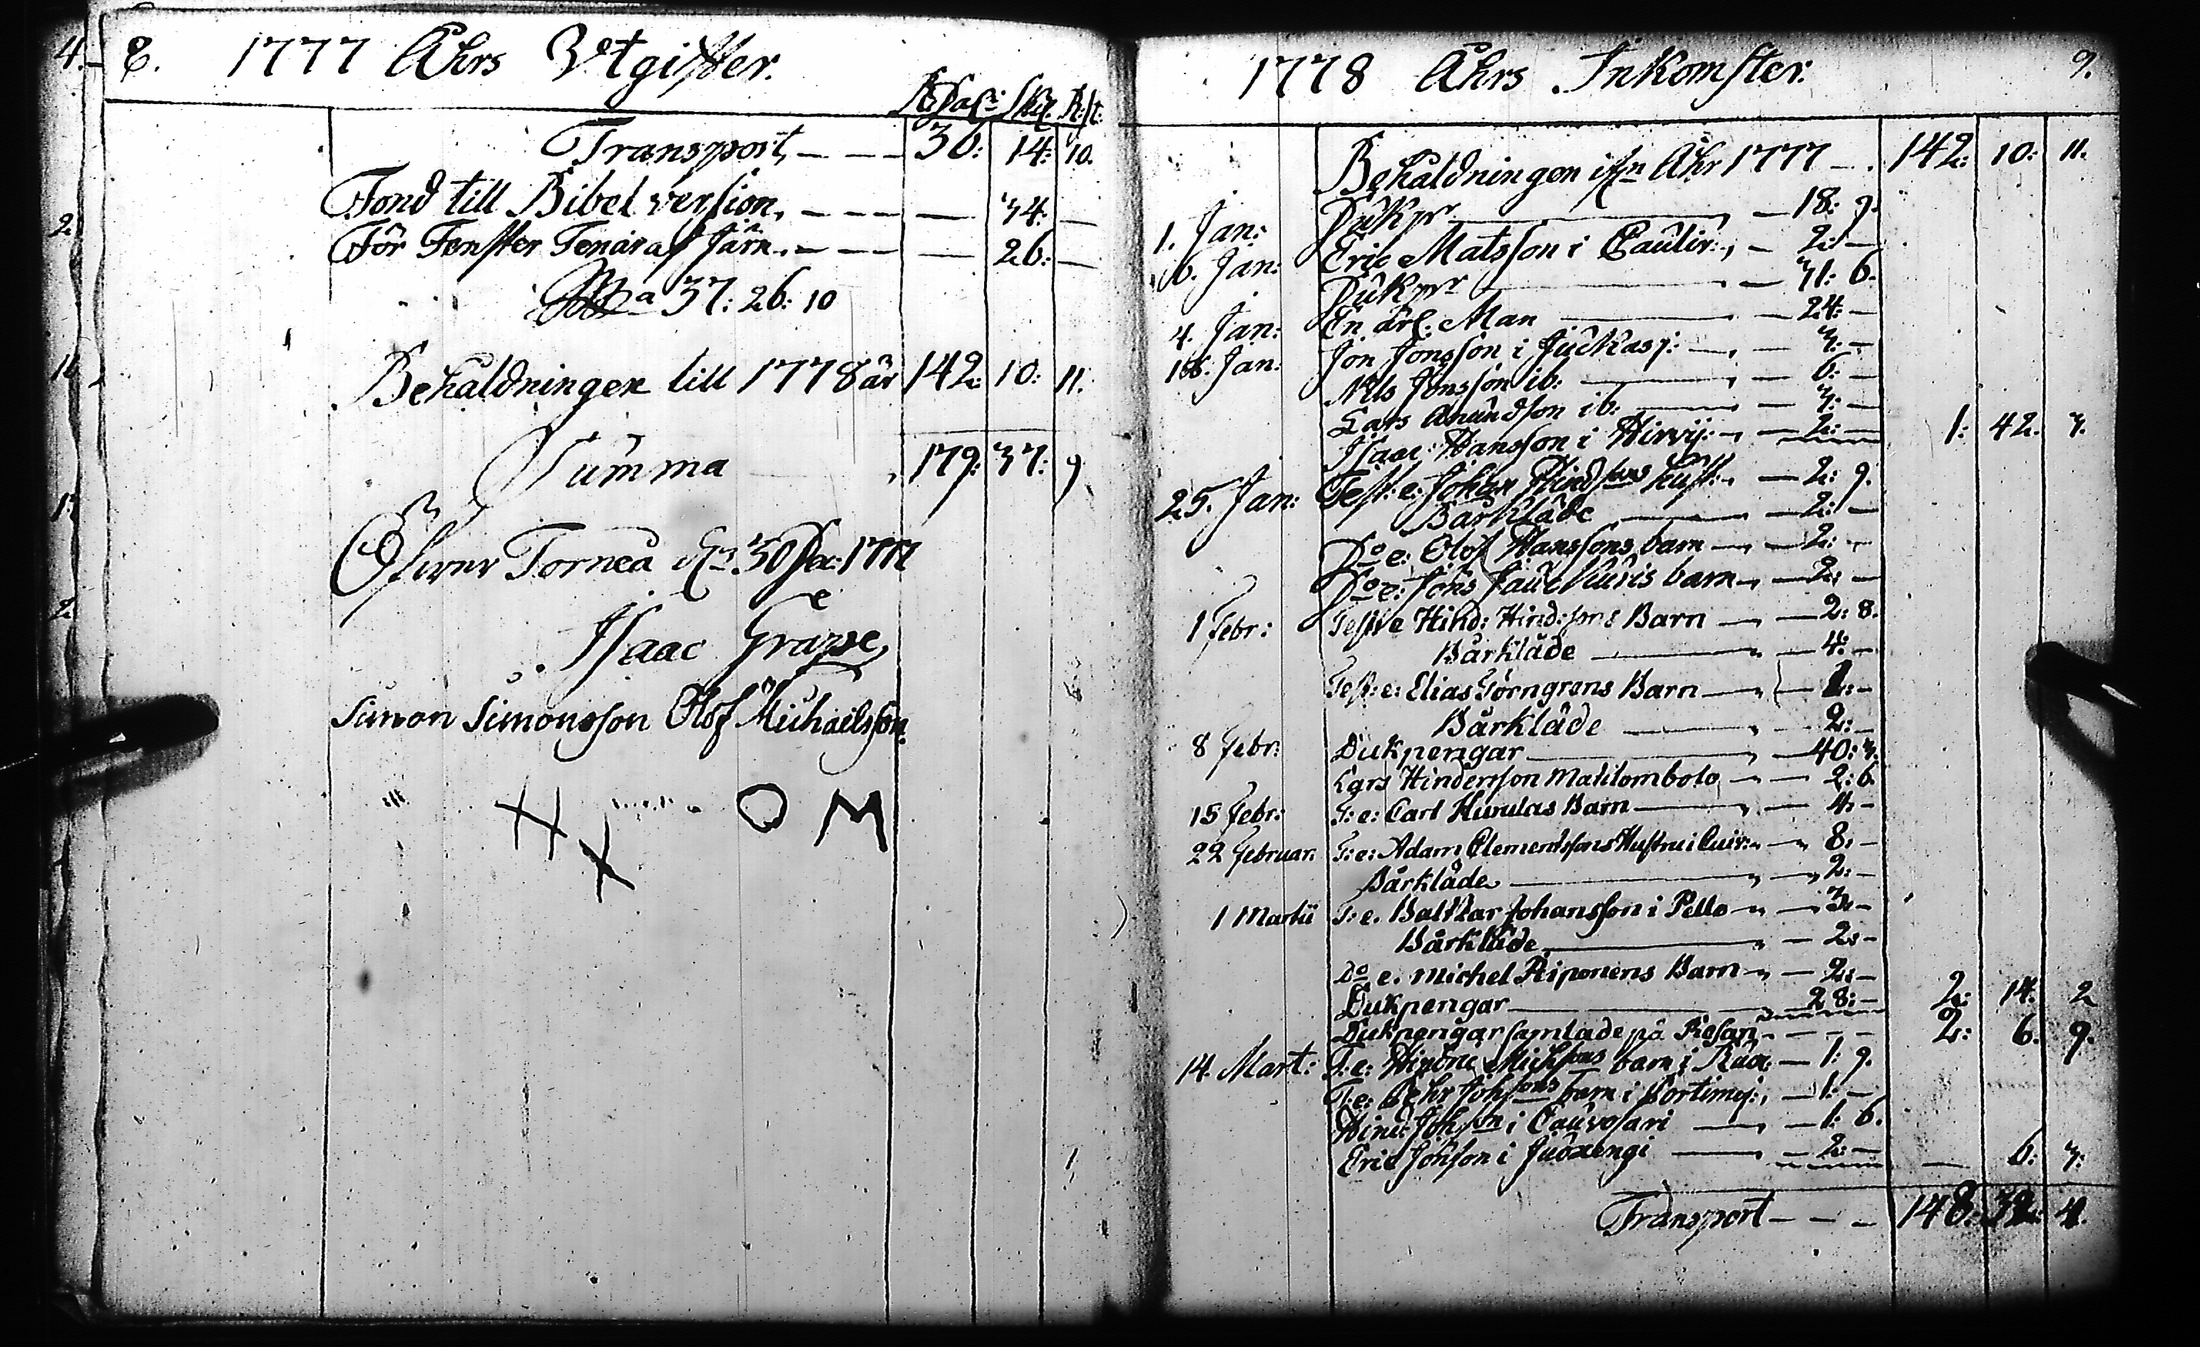 8. 1777 Åhrs Utgifter.
RDal: Skil. R:st:
Transport, — — — 36: 14: 10.
Fond till Bibel version, — — — — 34: —
För Fenster Tenar af Järn. — — — — 26: —
S:a 37: 26: 10
Behåldningen till 1778 år 142: 10: 11.
Summa 179: 37: 9
Öfver Torneå d. 30 Dec: 1777
Isaac Grape
Simon Simonsson Olof Michaelsson.
O M
1778 Åhrs Inkomster. 9.
Behåldningen ifrn Åhr 1777 — . 142: 10: 11.
1. Jan: Dukpr — 18: 9.
6. Jan: Eric Matsson i Caulir:, — 2: —
Dukpr — 31: 6.
4. Jan: En ärl. Man — 24: —
Jan: Jon Jonsson i Juckasj: — 3: —
Nils Jonsson ib: — 6: —
Lars Anundson ib: — 3: —
Isaac Hansson i Hirvij: — 2: — 1: 42. 3.
25. Jan: Test: e: Johan Hindsons hust: — 2: 9.
Bårkläde — 2: —
Do e: Olof Hanssons barn — 2: —
Do e: Jöns barn — 2: —
1 Febr: Test: e Hind: Hind:sons Barn — 2: 8.
Bårkläde — 4: —
Test: e: Elias Törngrens Barn —
Bårkläde — 2: —
8 Febr: Dukpengar — 40: 3.
Lars Hindersson Matilombolo — 2: 6.
15 Febr: T: e: Carl Hurulas Barn — 4: —
22 Februar: T: e: Adam Clementssons Hustru i — 8: —
Bårkläde — 2: —
1 Martii T: e. Balthar Johansson i Pello — 3: —
Bårkläde — 2: —
Do e. Michel Riponens Barn — 2: —
Dukpengar — 28: — 2: 14. 2
Dukpengar samlade på Resan — — — 2: 6. 9.
14. Mart: T: e: Michsons barn i — 1: 9.
T: e: Pehr Johsons barn i Portimoj:, — 1: —
Hind: Johson i Cauvosari — 1: 6.
Eric Johson i Juoxengi — 2: — — 6: 3:
Transport — — — 148: 32: 4.